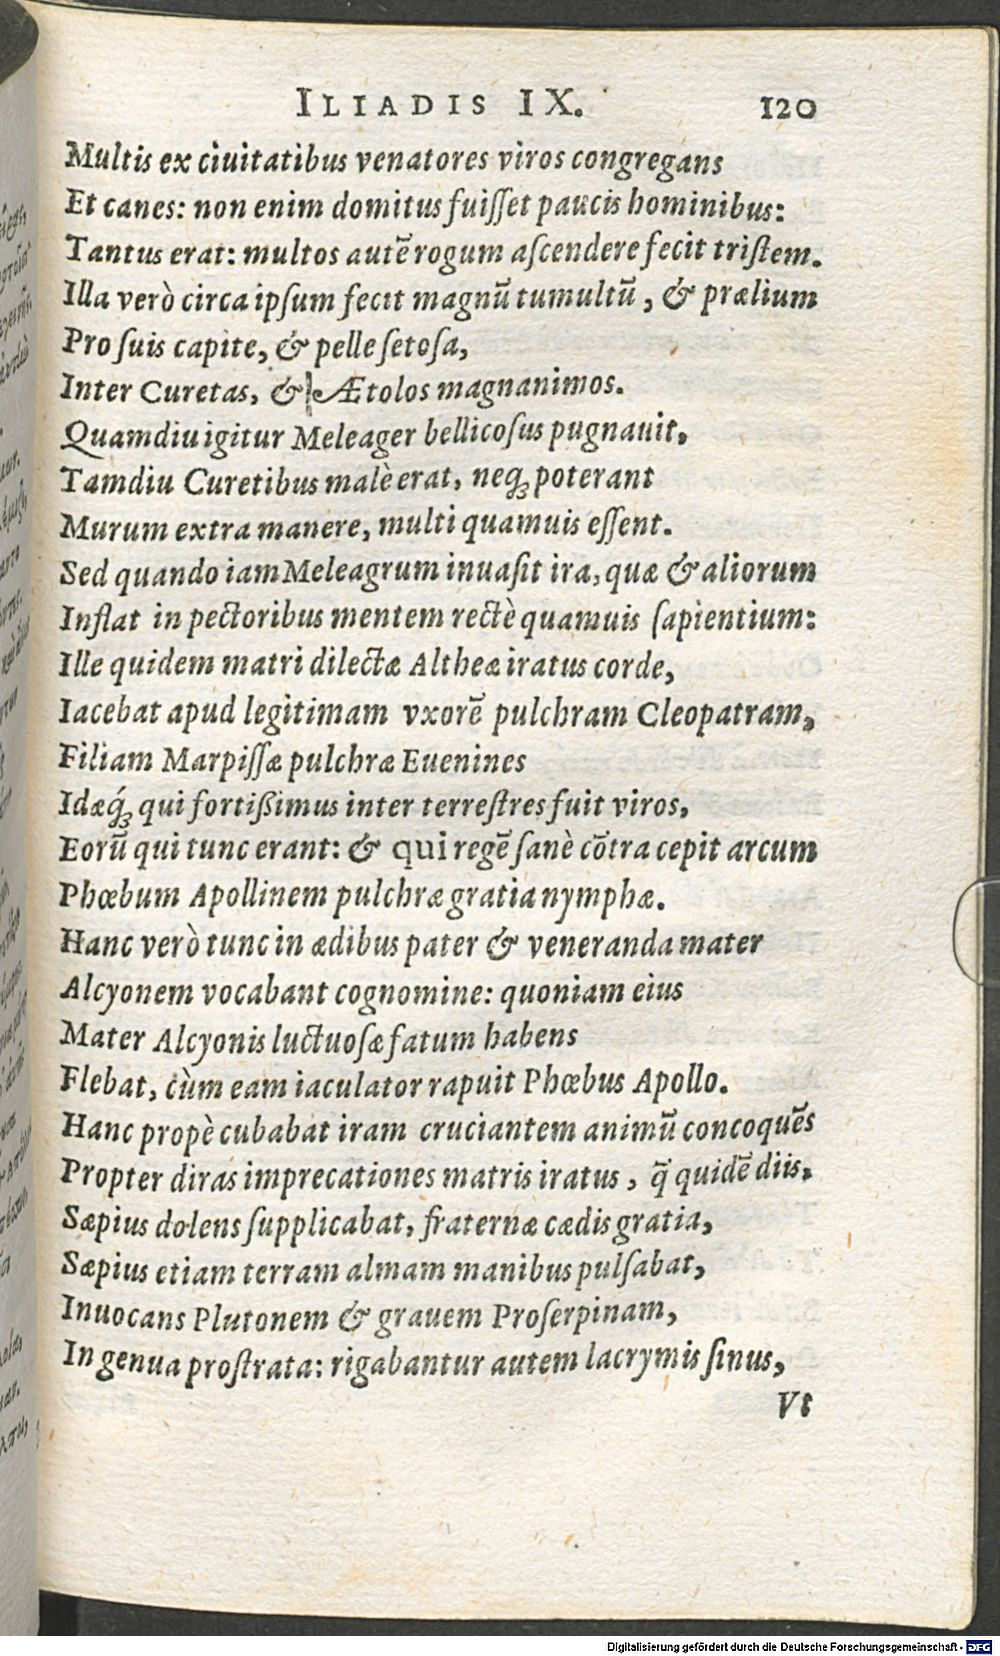 ILIADIS IX. 120
Multis ex ciuitatibus venatores viros congregans
Et canes: non enim domitus fuiſſet paucis hominibus:
Tantus erat: multos autē rogum aſcendere fecit triſtem.
Illa verò circa ipſum fecit magnū tumultū, & prælium
Pro ſuis capite, & pelle ſetoſa,
Inter Curetas, & Ætolos magnanimos.
Quamdiu igitur Meleager bellicoſus pugnauit,
Tamdiu Curetibus malè erat, neq; poterant
Murum extra manere, multi quamuis eſſent.
Sed quando iam Meleagrum inuaſit ira, quæ & aliorum
Inflat in pectoribus mentem rectè quamuis ſapientium:
Ille quidem matri dilectæ Altheæ iratus corde,
Iacebat apud legitimam vxorē pulchram Cleopatram,
Filiam Marpiſſæ pulchræ Euenines
Idæq́; qui fortißimus inter terreſtres fuit viros,
Eorū qui tunc erant: & qui regē ſanè cōtra cepit arcum
Phœbum Apollinem pulchræ gratia nymphæ.
Hanc verò tunc in ædibus pater & veneranda mater
Alcyonem vocabant cognomine: quoniam eius
Mater Alcyonis luctuoſæ fatum habens
Flebat, cùm eam iaculator rapuit Phœbus Apollo.
Hanc propè cubabat iram cruciantem animū concoquēs
Propter diras imprecationes matris iratus, q̄ quidē diis.
Sæpius dolens ſupplicabat, fraternæ cædis gratia,
Sæpius etiam terram almam manibus pulſabat,
Inuocans Plutonem & grauem Proſerpinam,
In genua proſtrata: rigabantur autem lacrymis ſinus,
Vt
Digitalisierung gefördert durch die Deutsche Forschungsgemeinschaft - DFG